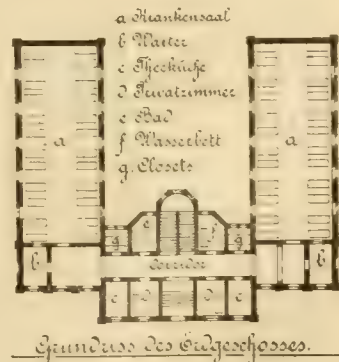 a Krankensaal
b Wärter
c Theeküche
d Privatzimmer
e Bad
f Wasserbett
g. Closets
a a
g e f g
b Corridor b
c d d c
Grundriss des Erdgeschosses.